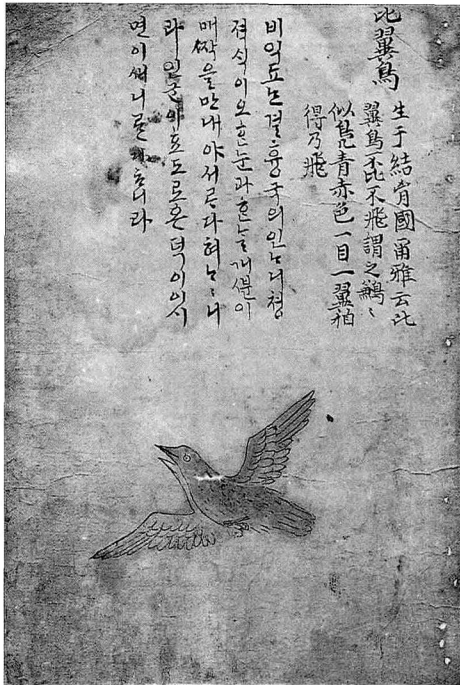 比翼鳥
生于結胷國爾雅云比
翼鳥不比不飛謂之鶼〻
似鳧青赤色一目一翼相
得乃飛
비익됴ᄂᆞᆫ결흉국의인ᄂᆞ니쳥
젹식이오ᄒᆞᆫ눈과ᄒᆞᆫᄂᆞᆯ개ᄲᅮᆫ이
매ᄧᅡᆨ을만내야서ᄅᆞ다혀ᄂᆞᄂᆞ니
라인군이효도로온덕이이시
면이새니른다ᄒᆞ니라